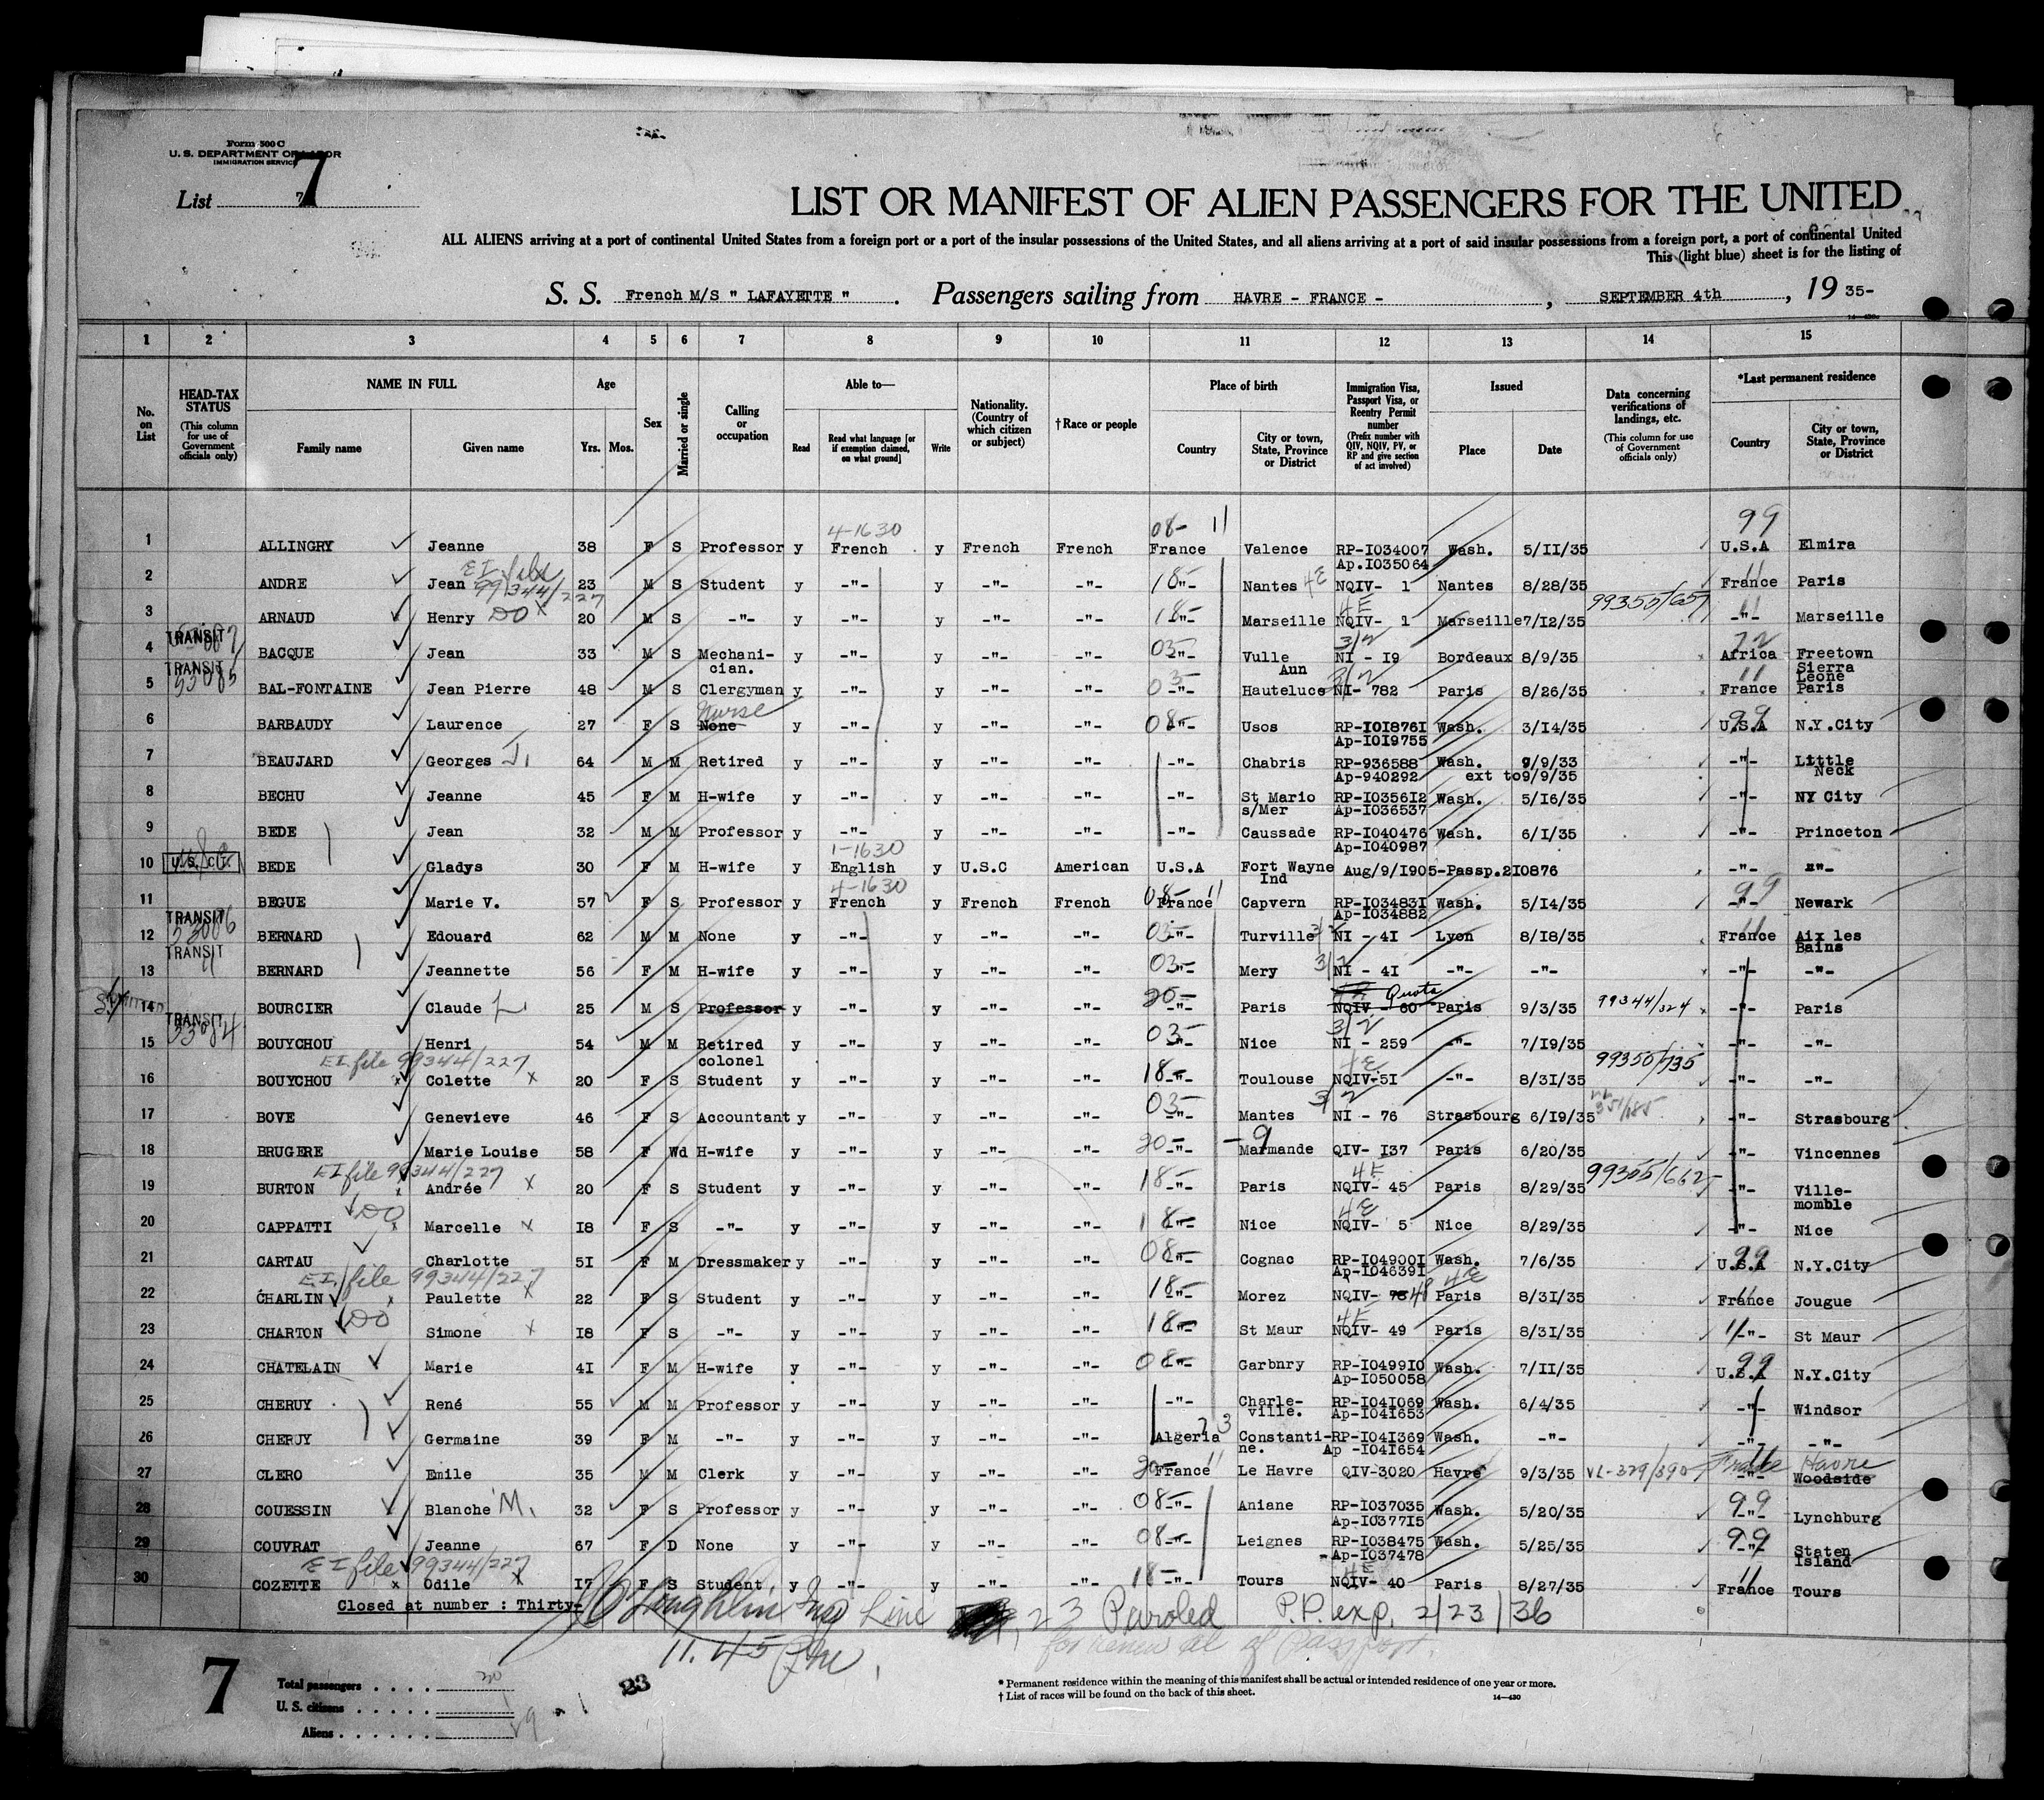 Form 500 C
U. S. DEPARTMENT OF LABOR
IMMIGRATION SERVICE
7
List 7
LIST OR MANIFEST OF ALIEN PASSENGERS FOR THE UNITED
ALL ALIENS arriving at a port of continental United States from a foreign port or a port of the insular possessions of the United States, and all aliens arriving at a port of said insular possessions from a foreign port, a port of continental United
This (light blue) sheet is for the listing of
S. S. French M/S " LAFAYETTE " . Passengers sailing from HAVRE - FRANCE - , SEPTEMBER 4th , 19 35-
1 2 3 4 5 6 7 8 9 10 11 12 13 14 15
No. on List
HEAD-TAX STATUS (This column for use of Government officials only)
NAME IN FULL Family name Given name
Age Yrs. Mos.
Sex
Married or single
Calling or occupation
Able to— Read Read what language [or if exemption claimed, on what ground] Write
Nationality. (Country of which citizen or subject)
†Race or people
Place of birth Country City or town, State, Province or District
Immigration Visa, Passport Visa, or Reentry Permit number (Prefix number with QIV, NQIV, PV, or RP and give section of act involved)
Issued Place Date
Data concerning verifications of landings, etc. (This column for use of Government officials only)
*Last permanent residence Country City or town, State, Province or District
4-1630 08- 11 99
1 ALLINGRY Jeanne 38 F S Professor y French y French French France Valence RP-I034007 Ap.I035064 Wash. 5/II/35 U.S.A Elmira
2 ANDRE Jean 99344/227 23 M S Student y -"- y -"- -"- 18- -"- Nantes 4E NQIV- 1 Nantes 8/28/35 11 France Paris
3 ARNAUD Henry DO x 20 M S -"- y -"- y -"- -"- 18- -"- Marseille 4E NQIV- 1 Marseille 7/12/35 99350/657 11 -"- Marseille
4 TRANSIT BACQUE Jean 33 M S Mechani-cian. y -"- y -"- -"- 03- -"- Vulle Aun 3/2 NI - I9 Bordeaux 8/9/35 72 Africa Freetown Sierra Leone
5 TRANSIT 53085 BAL-FONTAINE Jean Pierre 48 M S Clergyman y -"- y -"- -"- 03- -"- Hauteluce 3/2 NI- 782 Paris 8/26/35 11 France Paris
6 BARBAUDY Laurence 27 F S None Nurse y -"- y -"- -"- 08- -"- Usos RP-I0I876I Ap-I0I9755 Wash. 3/14/35 99 U.S.A N.Y.City
7 BEAUJARD Georges J. 64 M M Retired y -"- y -"- -"- -"- Chabris RP-936588 Ap-940292 Wash. 9/9/33 ext to9/9/35 -"- Little Neck
8 BECHU Jeanne 45 F M H-wife y -"- y -"- -"- -"- St Mario s/Mer RP-I0356I2 Ap-I036537 Wash. 5/I6/35 -"- NY City
9 BEDE Jean 32 M M Professor y -"- y -"- -"- -"- Caussade RP-I040476 Ap-I040987 Wash. 6/I/35 -"- Princeton
10 U.S. CIT. BEDE Gladys 30 F M H-wife y 1-1630 English y U.S.C American U.S.A Fort Wayne Ind Aug/9/I905-Passp.2I0876 -"- -"-
11 BEGUE Marie V. 57 F S Professor y 4-1630 French y French French 08- 11 France Capvern RP-I03483I Ap-I034882 Wash. 5/I4/35 99 -"- Newark
12 TRANSIT 53086 BERNARD Edouard 62 M M None y -"- y -"- -"- 03- -"- Turville 3/2 NI - 4I Lyon 8/I8/35 11 France Aix les Bains
13 TRANSIT 11 BERNARD Jeannette 56 F M H-wife y -"- y -"- -"- 03- -"- Mery 3/2 NI - 4I -"- -"- -"- -"-
14 BOURCIER Claude L. 25 M S Professor y -"- y -"- -"- 20- -"- Paris Quota NQIV - 60 Paris 9/3/35 99344/324 -"- Paris
15 TRANSIT 53084 BOUYCHOU Henri 54 M M Retired colonel y -"- y -"- -"- 03- -"- Nice 3/2 NI - 259 -"- 7/I9/35 -"- -"-
EI file 99344/227
16 BOUYCHOU x Colette x 20 F S Student y -"- y -"- -"- 18- -"- Toulouse 4E NQIV-5I -"- 8/3I/35 99350/735 -"- -"-
17 BOVE Genevieve 46 F S Accountant y -"- y -"- -"- 03- -"- Mantes 3/2 NI - 76 Strasbourg 6/I9/35 -"- Strasbourg
18 BRUGERE Marie Louise 58 F Wd H-wife y -"- y -"- -"- 20- -"- -9 Marmande QIV- I37 Paris 6/20/35 -"- Vincennes
EI file 99344/227
19 BURTON x Andrée x 20 F S Student y -"- y -"- -"- 18- -"- Paris 4E NQIV- 45 Paris 8/29/35 99355/662 -"- Ville-momble
DO
20 CAPPATTI x Marcelle x I8 F S -"- y -"- y -"- -"- 18- -"- Nice 4E NQIV- 5 Nice 8/29/35 -"- Nice
21 CARTAU Charlotte 5I F M Dressmaker y -"- y -"- -"- 08- -"- Cognac RP-I04900I Ap-I04639I Wash. 7/6/35 99 U.S.A N.Y.City
E.I. file 99344/227
22 CHARLIN x Paulette x 22 F S Student y -"- y -"- -"- 18- -"- Morez NQIV- 48 4E Paris 8/3I/35 11 France Jougue
DO
23 CHARTON Simone x I8 F S -"- y -"- y -"- -"- 18- -"- St Maur 4E NQIV- 49 Paris 8/3I/35 11 -"- St Maur
24 CHATELAIN Marie 4I F M H-wife y -"- y -"- -"- 08- -"- Garbnry RP-I0499I0 Ap-I050058 Wash. 7/II/35 99 U.S.A N.Y.City
25 CHERUY René 55 M M Professor y -"- y -"- -"- -"- Charle-ville. RP-I04I069 Ap-I04I653 Wash. 6/4/35 -"- Windsor
26 CHERUY Germaine 39 F M -"- y -"- y -"- -"- 73 Algeria Constanti-ne. RP-I04I369 Ap -I04I654 Wash. -"- -"- -"-
27 CLERO Emile 35 M M Clerk y -"- y -"- -"- 20- 11 France Le Havre QIV-3020 Havre 9/3/35 VL-329/390 France 11 -"- Havre Woodside
28 COUESSIN Blanche M. 32 F S Professor y -"- y -"- -"- 08- -"- Aniane RP-I037035 Ap-I0377I5 Wash. 5/20/35 99 -"- Lynchburg
29 COUVRAT Jeanne 67 F D None y -"- y -"- -"- 08- -"- Leignes RP-I038475 Ap-I037478 Wash. 5/25/35 99 -"- Staten Island
E I file 99344/227
30 COZETTE x Odile x I7 F S Student y -"- y -"- -"- 18- -"- Tours 4E NQIV- 40 Paris 8/27/35 11 France Tours
Closed at number : Thirty- O'Loughlin Insp Line 23 Paroled P.P. exp. 2/23/36
11.45 Pm. for renewal of Passport.
7
Total passengers 30
U. S. citizens 1
Aliens
23
* Permanent residence within the meaning of this manifest shall be actual or intended residence of one year or more.
† List of races will be found on the back of this sheet.
14—430